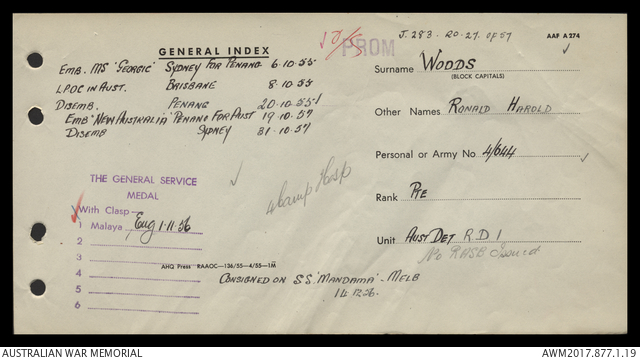 J. 283. 20-27. of 57
AAF A 274
GENERAL INDEX
PROM
EMB. MS 'GEORGIC' SYDNEY FOR PENANG 6.10.55
L.P.O.C IN AUST. BRISBANE 8.10.55
DISEMB. PENANG 20-10-55
EMB 'NEW AUSTRALIA' PENANG FOR AUST 19.10.57
DISEMB SYDNEY 31.10.57
Surname WOODS
(BLOCK CAPITALS)
Other Names RONALD HAROLD
Personal or Army No 4/644
Rank PTE
Unit AUST DET R.D 1
No RASB Issued
4 Camp Hosp
THE GENERAL SERVICE
MEDAL
With Clasp—
1 Malaya Eng 1.11.56
2
3
4
5
6
AHQ Press RAAOC—136/55—4/55—1M
CONSIGNED ON S.S. 'MANDAMA' - MELB
14.12.56.
AUSTRALIAN WAR MEMORIAL
AWM2017.877.1.19